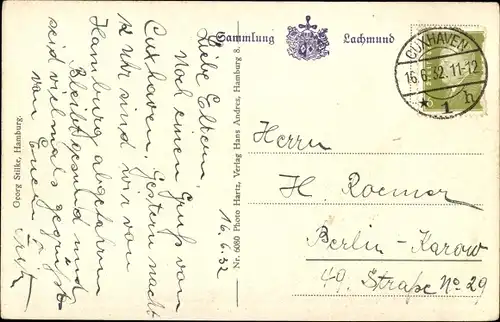 Sammlung Lachmund
CUXHAVEN
16.6.32.11-12
* 1 h
16.6.32
Liebe Eltern,
Noch einen Gruß von
Cuxhaven. Gestern nacht
12 Uhr sind wir von
Hamburg abgefahren
Bleibt gesund und
seid vielmals gegrüßt
von Euerm
Herrn
H. Roemer
Berlin-Karow
49. Straße No 29
Nr. 6080 Photo Hartz, Verlag Hans Andres, Hamburg 8.
Georg Stilke, Hamburg.